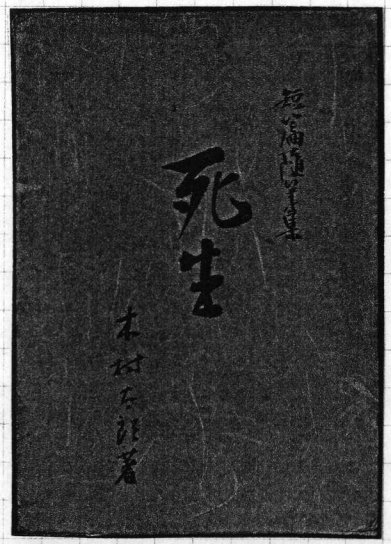 短篇随筆集
死生
木村太郎著